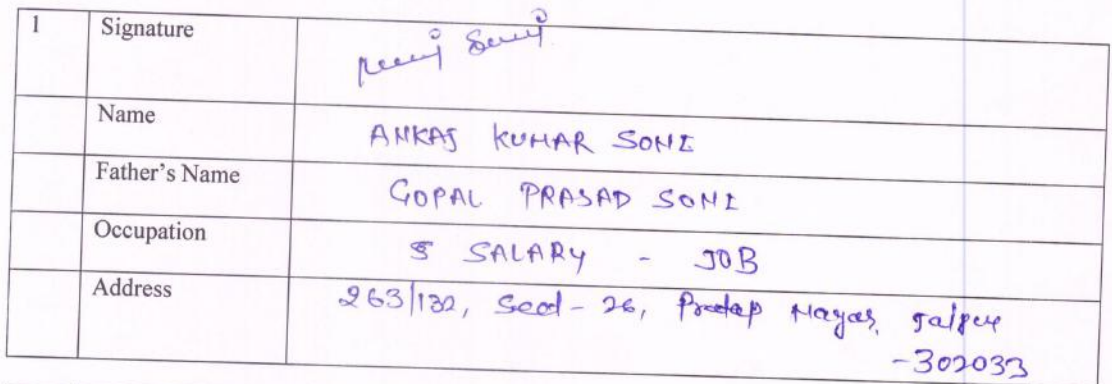 1 Signature
Name ANKAJ KUMAR SONI
Father's Name GOPAL PRASAD SONI
Occupation SALARY - JOB
Address 263/132, Sect-26, Pratap Nagar, Jaipur
-302033